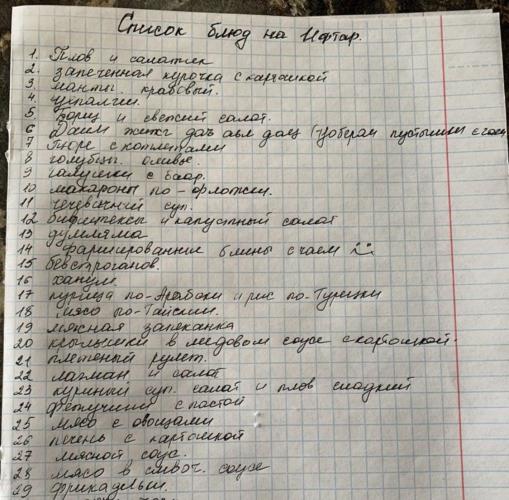 Список блюд на Ифтар.
1. Плов и салатик
2. запеченная курочка с картошкой
3. манты. крабовый.
4.
5. Борщ и свежий салат.
6
7 Пюре с котлетами
8 голубцы. оливье.
9 галушки с
10 макароны по-флотски.
11 чечевичный суп.
12 бифштексы и капустный салат
13 думляма
14 фаршированные блины с чаем
15 бефстроганов.
16 ханум.
17 курица по- и рис по-Турецки
18 мясо по-Тайски.
19 мясная запеканка
20 крылышки в медовом соусе с картошкой.
21 рулет.
22 лагман и салат
23 куриный суп. салат и плов сладкий
24 с пастой
25 мясо с овощами
26 печень с картошкой
27 мясной соус.
28 мясо в сливоч. соусе
29 фрикадельки.